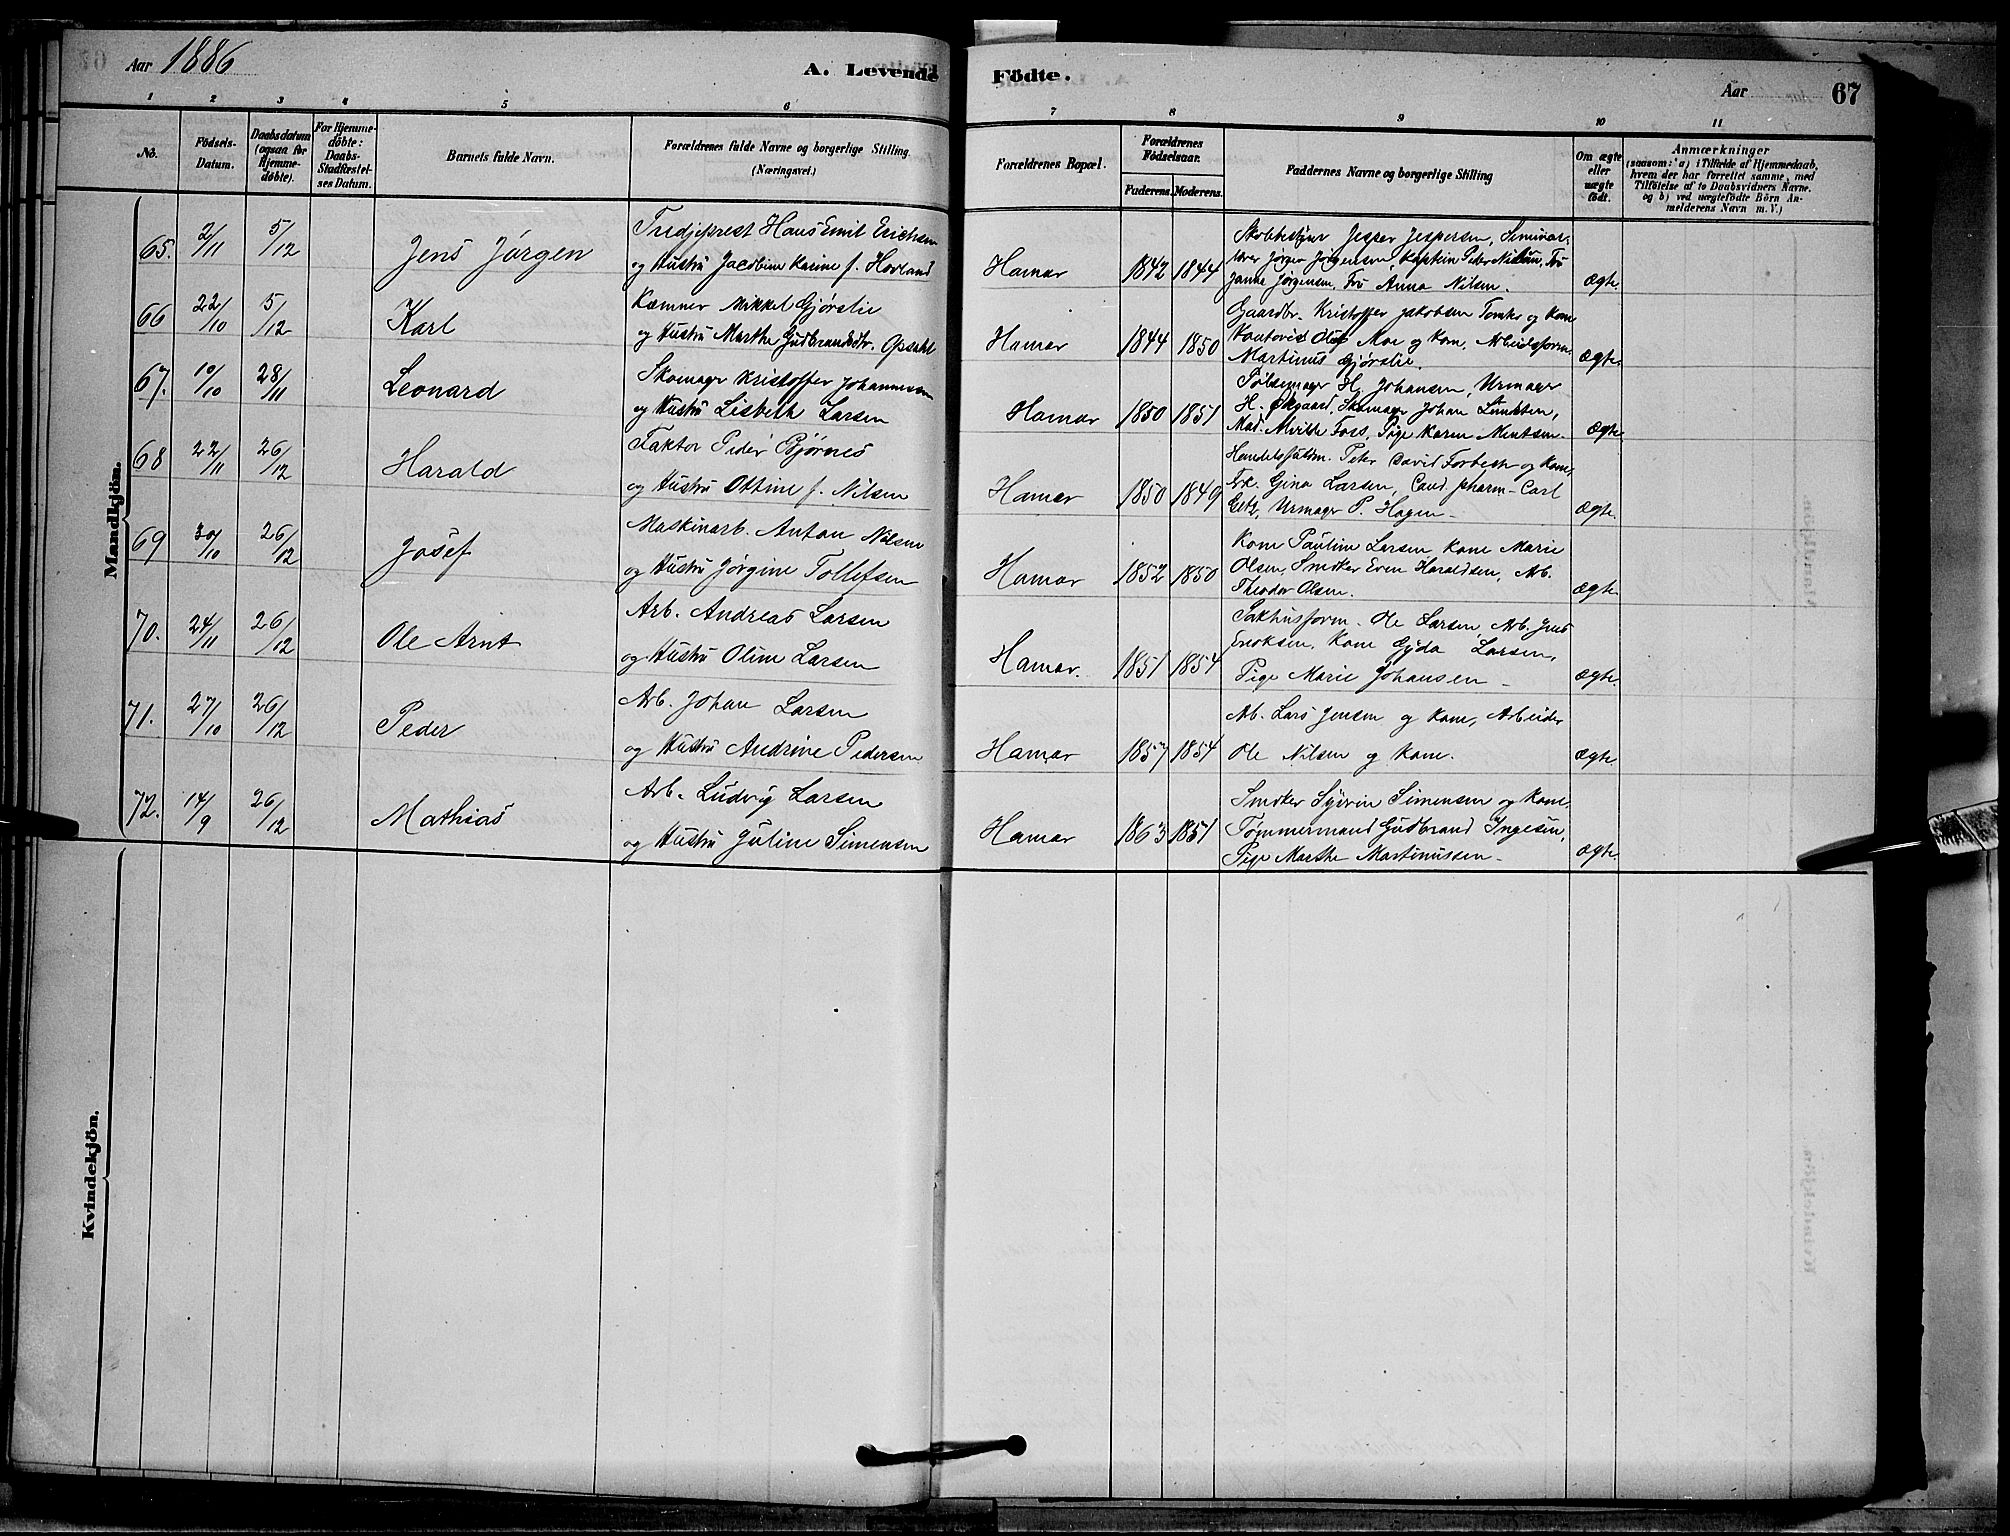 Aar 1886
A. Levende Födte.
Aar 67
1 2 3 4 5 6 7 8 9 10 11
No.
Födsels-Datum.
Daabsdatum (ogsaa for Hjemme-döbte).
For Hjemme-döbte: Daabs-Stadfæstel-ses Datum.
Barnets fulde Navn.
Forældrenes fulde Navne og borgerlige Stilling. (Næringsvei.)
Forældrenes Bopæl.
Forældrenes Födselsaar.
Faderens. Moderens.
Faddernes Navne og borgerlige Stilling
Om ægte eller uægte födt.
Anmærkninger
(saasom: a) i Tilfælde af Hjemmedaab,
hvem der har forrettet samme, med
Tilföielse af to Daabsvidners Navne.
og b) ved uægtefödte Börn An-
melderens Navn m. V.)
Mandkjön.
65. 2/11 5/12 Jens Jørgen
Tredjeprest Hans Emil Erichsen
og Hustru Jacobine Karine f. Hovland
Hamar 1842 1844
Jesper Jespersen, Seminar-
lærer Jørgen Jörgensen, Kaptein Peder Nilsen, Fru
Janna Jørgensen, Fru Anna Nilsen. Ægte.
66 22/10 5/12 Karl
Kæmner Mikkel Gjørslie
og Hustru Marthe Gudbrandsdtr. Opsahl
Hamar 1844 1850
Gaardbr. Kristoffer Jakobsen Tomter og Kone
Olaf Moe og Kone, Arbeidsform.
Martinus Gjørslie. Ægte.
67. 10/10 28/11 Leonard
Skomager Kristoffer Johannesen
og Hustru Lisbeth Larsen
Hamar 1850 1851
Pølsemager H. Johansen, Urmager
H. Skomager Johan
Mad. Foss, Pige Karen Ægte.
68 22/11 26/12 Harald
Faktor Peder Bjørnes
og Hustru Ottine f. Nilsen
Hamar 1850 1849
Peter David og Kone,
Frk. Gina Larsen, Cand. pharm. Carl
Getz, Urmager P. Hagen Ægte.
69 30/10 26/12 Josef
Maskinarb. Anton Nilsen
og Hustru Jørgine Tollefsen
Hamar 1852 1850
Kone Pauline Larsen, Kone Marie
Olsen, Snedker Even Haraldsen, Arb.
Theodor Olsen. Ægte.
70. 24/11 26/12 Ole Arnt
Arb. Andreas Larsen
og Hustru Oline Larsen
Hamar. 1851 1854
Pakhusform. Ole Larsen, Arb. Jens
Eriksen, Kone Gyda Larsen,
Pige Marie Johansen Ægte.
71. 27/10 26/12 Peder
Arb. Johan Larsen
og Hustru Andrine Pedersen
Hamar 1857 1854
Arb. Lars Jensen og Kone, Arbeider
Ole Nilsen og Kone. Ægte.
72. 14/9 26/12 Mathias
Arb. Ludvig Larsen
og Hustru Juline Simensen
Hamar 1863 1851
Snedker Syverin Simensen og Kone,
Tømmermand Gudbrand Ingesen,
Pige Marthe Martinussen Ægte.
Kvindekjön.